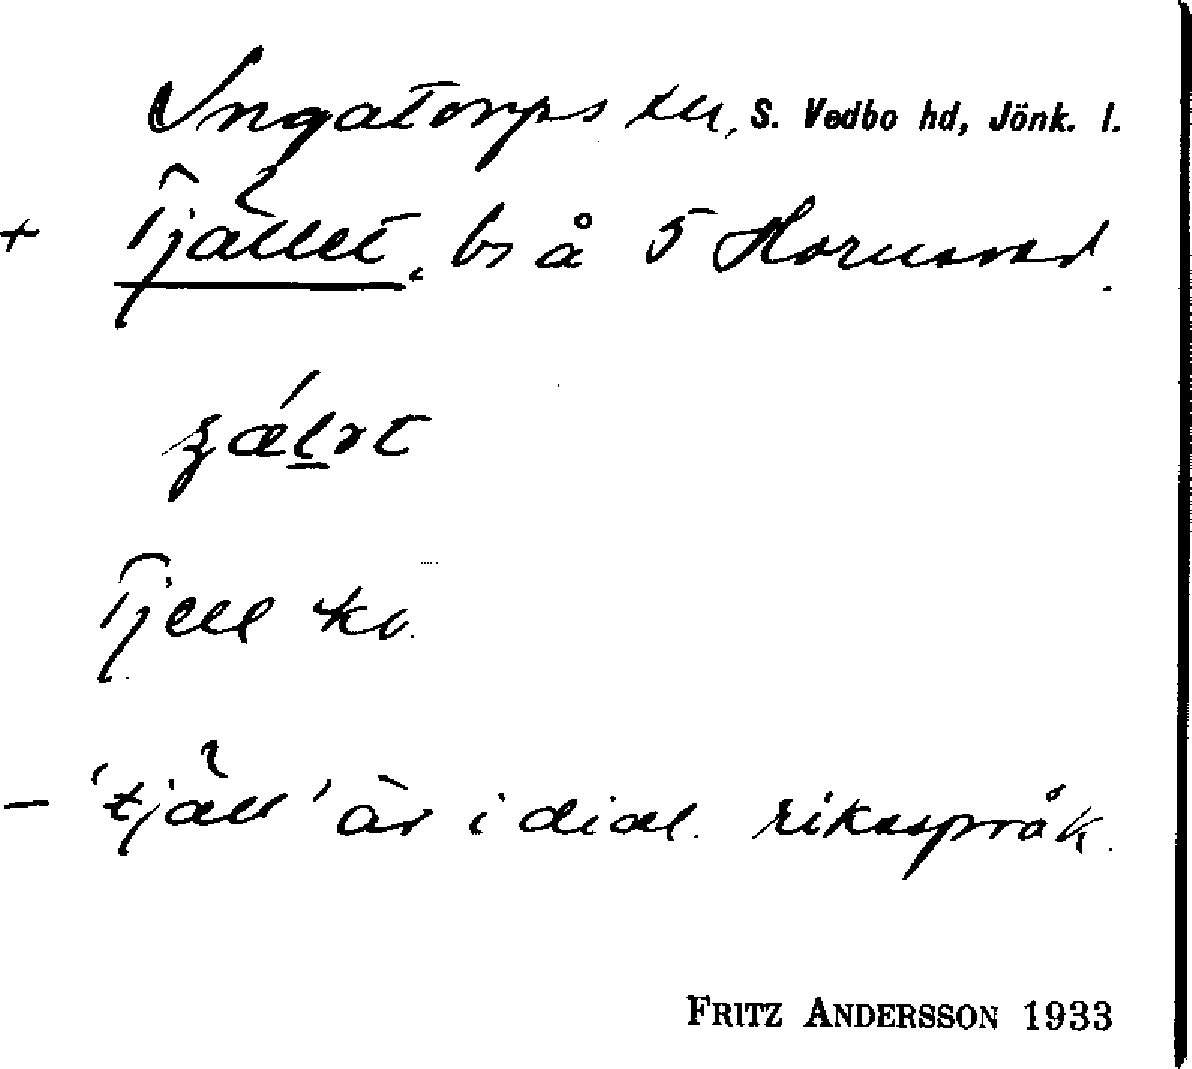 Ingatorps sn, S. Vedbo hd, Jönk. l.
+ Tjället, bs å 5 Hornsved.
Tjell kv.
– 'tjäll' är i dial. riksspråk.
FRITZ ANDERSSON 1933